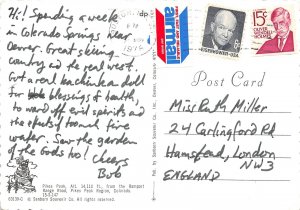 Hi! Spending a week
in Colorado Springs near
Denver. Great skiing
country and the real west.
Got a real kachinka doll
for the blessings of health,
to ward off evil spirits and
the effects of too much fire
water. Saw the garden
of the Gods too! Cheers
Bob
Pikes Peak, Alt. 14,110 ft. from the Rampart
Range Road, Pikes Peak Region, Colorado.
© Sanborn Souvenir Co. All Rights Reserved
dp
1975
airmail
EISENHOWER·USA
15c
OLIVER
WENDELL
HOLMES
Post Card
Miss Ruth Miller
24 Carlingford Rd
Hampstead, London
NW3
ENGLAND